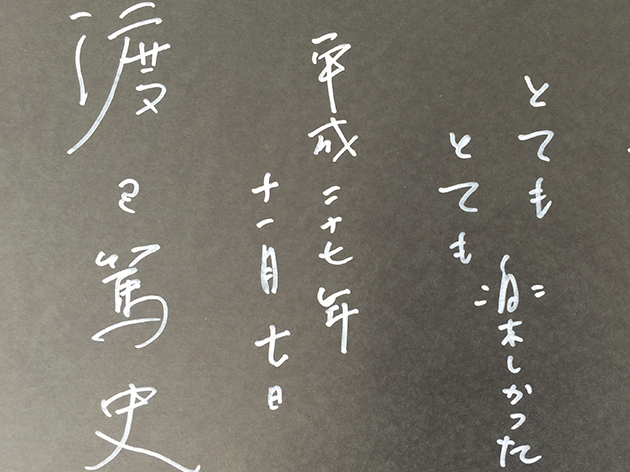 とても
とても
楽しかった
平成二十七年
十一月七日
渡辺篤史